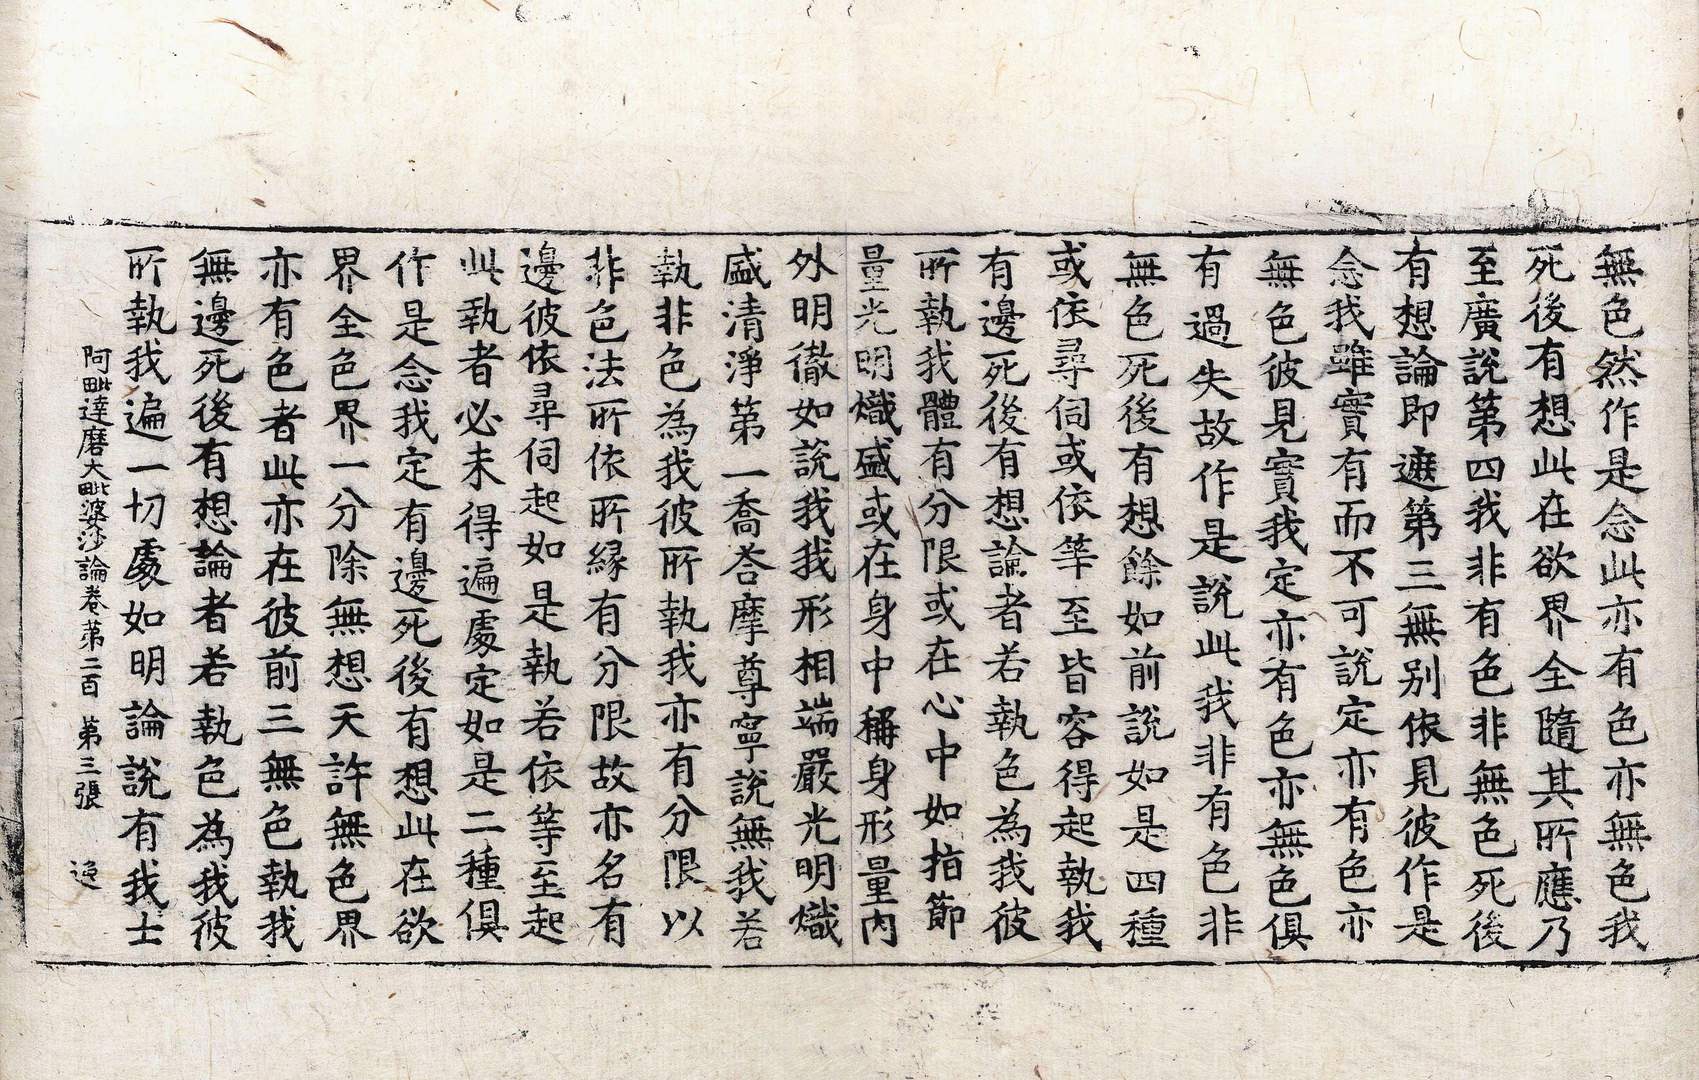 無色然作是念此亦有色亦無色我
死後有想此在欲界全隨其所應乃
至廣說第四我非有色非無色死後
有想論即遮第三無別依見彼作是
念我雖實有而不可說定亦有色亦
無色彼見實我定亦有色亦無色俱
有過失故作是說此我非有色非
無色死後有想餘如前說如是四種
或依尋伺或依等至皆容得起執我
有邊死後有想論者若執色為我彼
所執我體有分限或在心中如指節
量光明熾盛或在身中稱身形量內
外明徹如說我我形相端嚴光明熾
盛清淨第一喬荅摩尊寧說無我若
執非色為我彼所執我亦有分限以
非色法所依所緣有分限故亦名有
邊彼依尋伺起如是執若依等至起
此執者必未得遍處定如是二種俱
作是念我定有邊死後有想此在欲
界全色界一分除無想天許無色界
亦有色者此亦在彼前三無色執我
無邊死後有想論者若執色為我彼
所執我遍一切處如明論說有我士
阿毗達磨大毗婆沙論卷第二百 第三張 逸